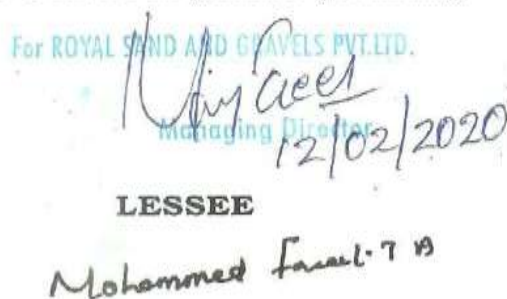 For ROYAL SAND AND GRAVELS PVT.LTD.
Managing Director
12/02/2020
LESSEE
Mohammed